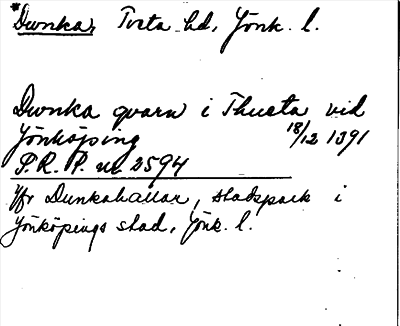 *Dunka, Tveta hd, Jönk. l.
Dunka qvarn i Thueta vid
Jönköping 18/12 1391
P.R.P. nr 2594
Jfr Dunkahallar, stadspark i
Jönköpings stad, Jönk. l.